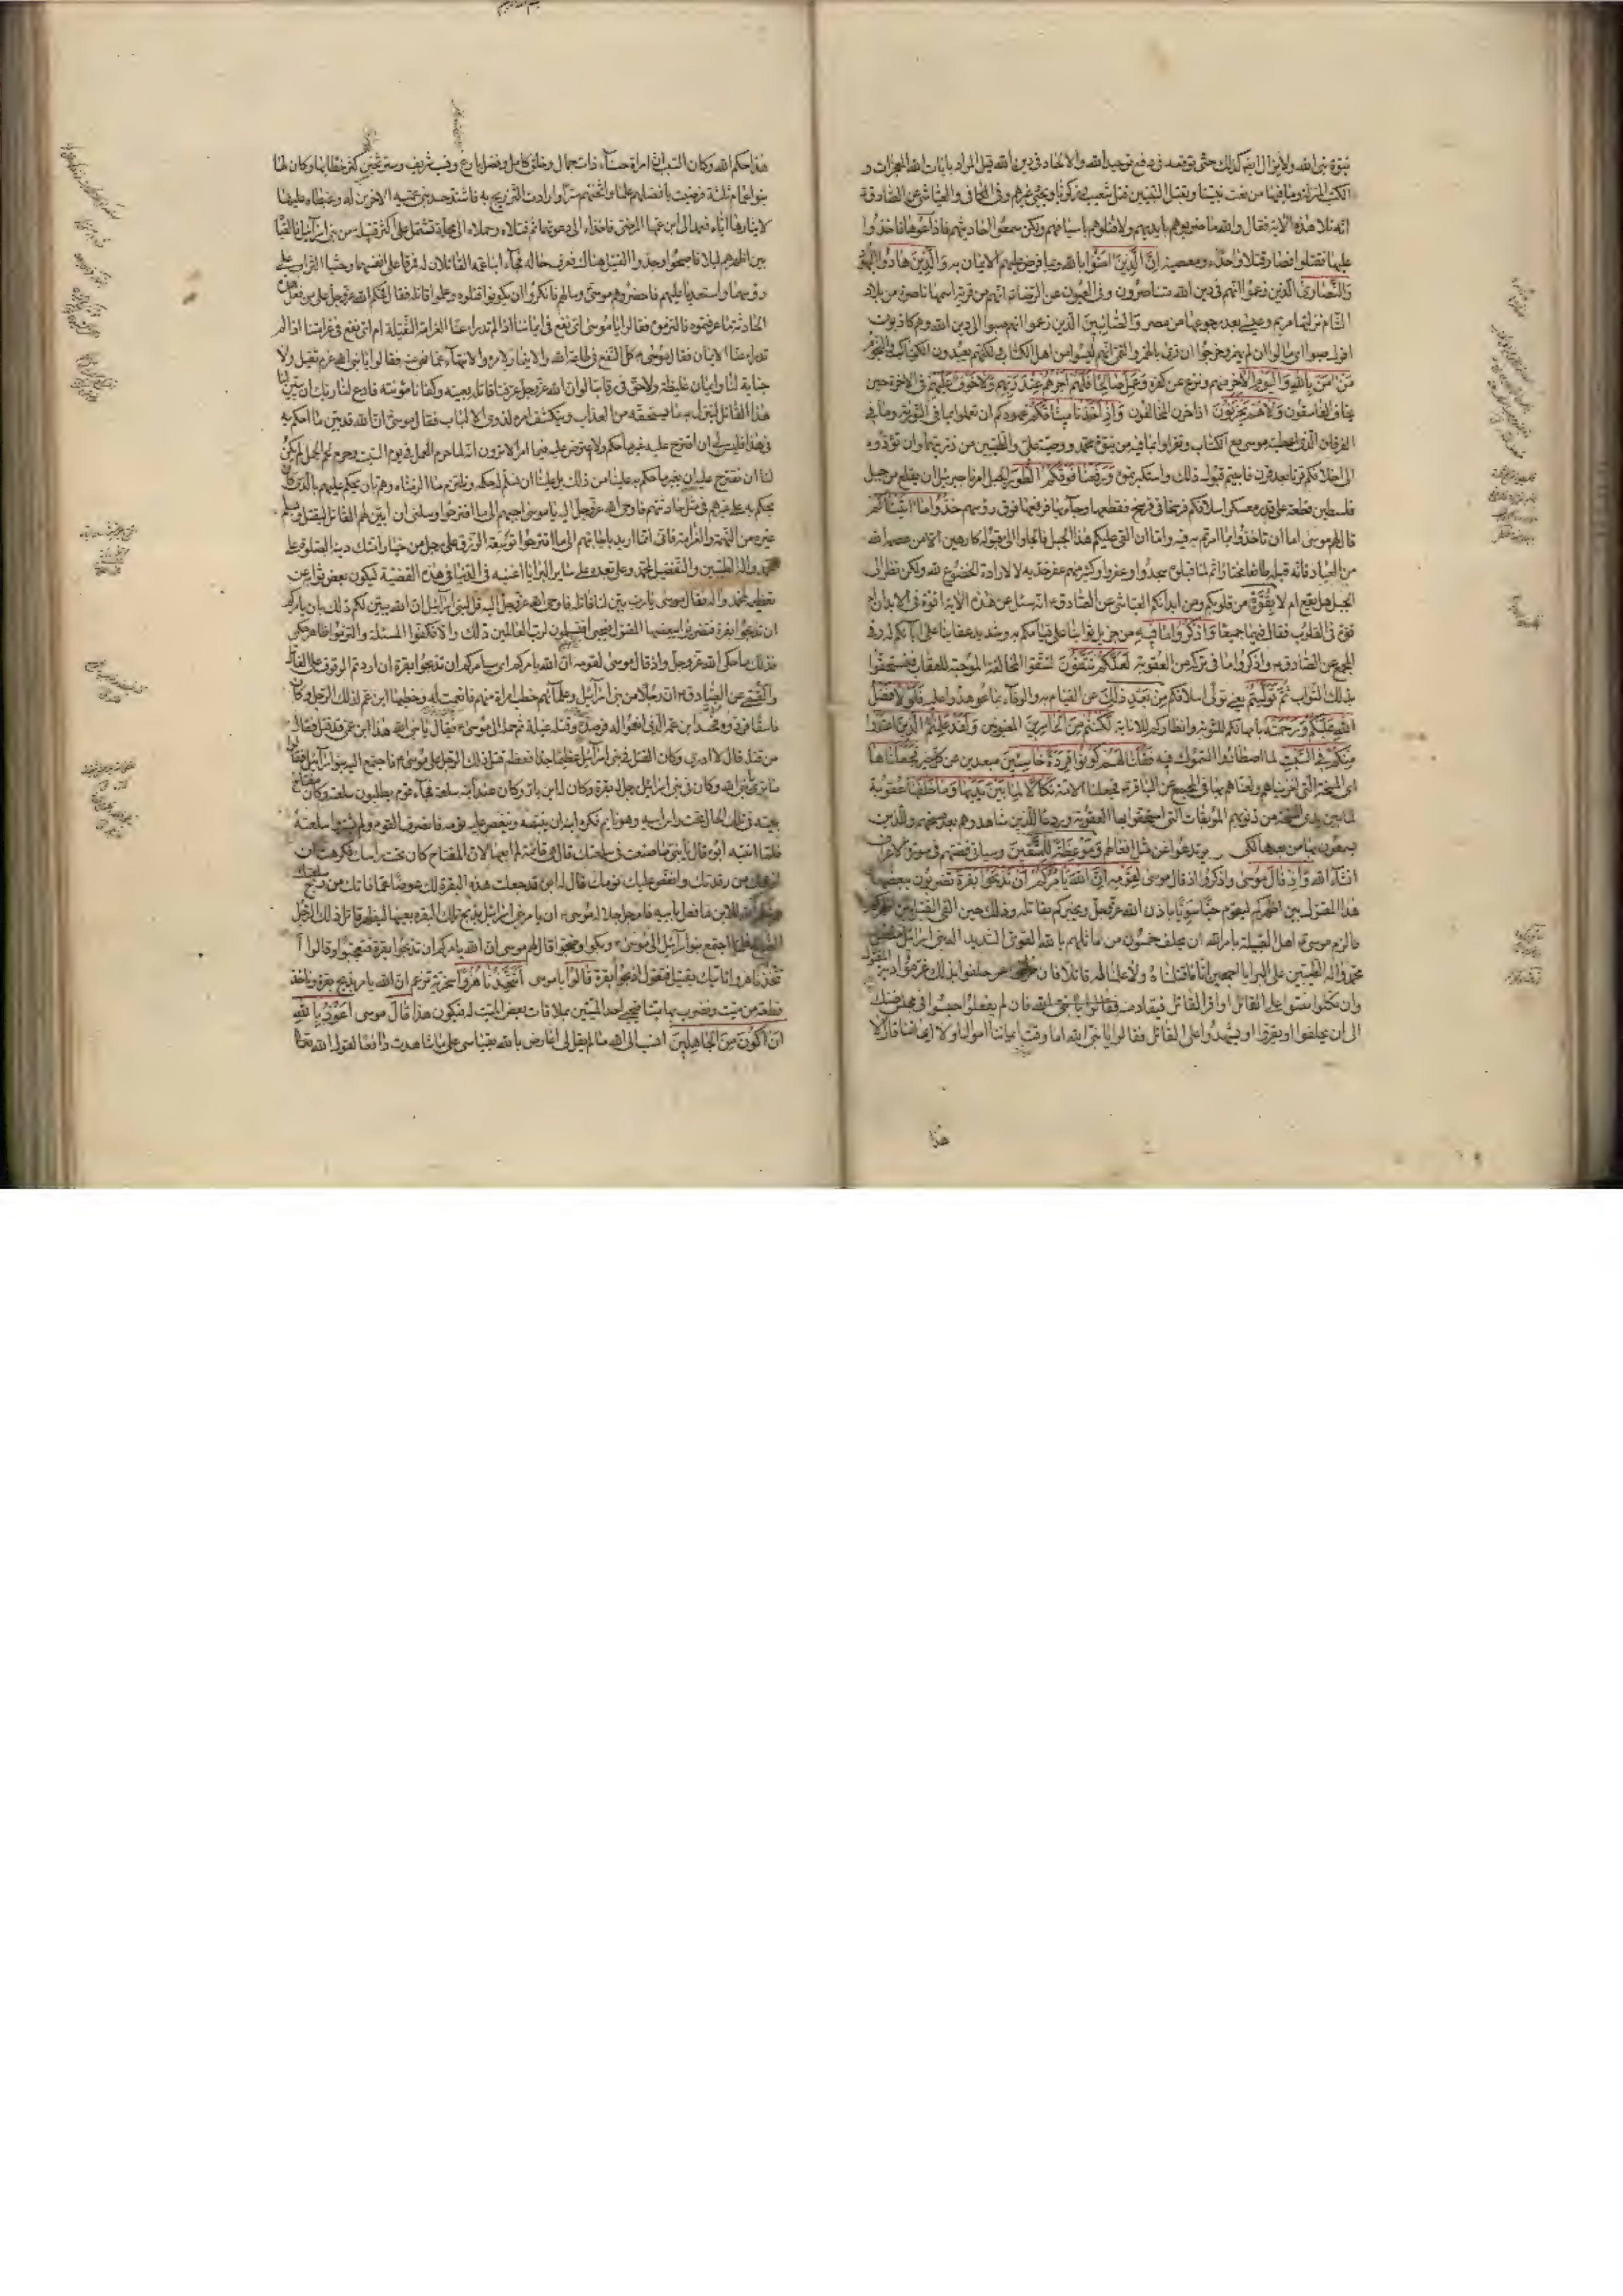 بنبوة نبى الله ولا يزال ايضا كذلك حتى يوقعه فى دفع توحيد الله والالحاد فى دين الله قيل المراد بايات الله المعجزات و
الكتب المنزلة وما فيها من نعت نبينا وبقتل النبيين قتل شعيب وزكريا ويحيى وغيرهم وفى الكافى والعياشى عن الصادق
انه تلا هذه الاية فقال والله ما ضربوهم بايديهم ولا قتلوهم باسيافهم ولكن سمعوا احاديثهم فاذاعوها فاخذوا
عليها فقتلوا فصار قتلا واعتداء ومعصية ان الذين امنوا بالله وبما فرض عليهم الايمان به والذين هادوا اليهود
والنصارى الذين زعموا انهم فى دين الله متناصرون وفى العيون عن الرضا انهم من قرية اسمها ناصرة من بلاد
الشام نزلتها مريم وعيسى بعد رجوعهما من مصر والصابئين الذين زعموا انهم صبوا الى دين الله وهم كاذبون
اقول صبوا اى مالوا ان لم يهمز وخرجوا ان قرئ بالهمز والقمى انهم ليسوا من اهل الكتاب لكنهم يعبدون الكواكب والنجوم
من امن بالله واليوم الاخر منهم ونزع عن كفره وعمل صالحا فلهم اجرهم عند ربهم ولا خوف عليهم فى الاخرة حين
يخاف الفاسقون ولا هم يحزنون اذا حزن المخالفون واذ اخذنا ميثاقكم عهودكم ان تعملوا بما فى التورية وما فى
الفرقان الذى اعطيته موسى مع الكتاب وتقروا بما فيه من نبوة محمد ووصية على والطيبين من ذريتهما وان تؤدوه
الى اخلافكم قرنا بعد قرن فابيتم قبول ذلك واستكبرتموه ورفعنا فوقكم الطور الجبل امرنا جبرئيل ان يقلع من جبل
فلسطين قطعة على قدر معسكر اسلافكم فرسخا فى فرسخ فقطعها وجاء بها فرفعها فوق رؤسهم خذوا ما اتيناكم
قال لهم موسى اما ان تاخذوا بما امرتم به فيه واما ان القى عليكم هذا الجبل فالجاوا الى قبوله كارهين الا من عصمه الله
من العباد فانه قبله طائعا مختارا ثم لما قبلوه سجدوا وعفروا وكثير منهم عفر خديه لا لارادة الخضوع لله ولكن نظرا الى
الجبل هل يقع ام لا بقوة من قلوبكم ومن ابدانكم العياشى عن الصادق انه سئل عن هذه الاية اقوة فى الابدان ام
قوة فى القلوب فقال فيهما جميعا واذكروا ما فيه من جزيل ثوابنا على قيامكم به وشديد عقابنا على ابائكم له وفى
المجمع عن الصادق واذكروا ما فى تركه من العقوبة لعلكم تتقون لتتقوا المخالفة الموجبة للعقاب فتستحقوا
بذلك الثواب ثم توليتم يعنى تولى اسلافكم من بعد ذلك عن القيام به والوفاء بما عوهدوا عليه فلولا فضل
الله عليكم ورحمته بامهالكم للتوبة وانظاركم للانابة لكنتم من الخاسرين المغبونين ولقد علمتم الذين اعتدوا
منكم فى السبت لما اصطادوا السموك فيه فقلنا لهم كونوا قردة خاسئين مبعدين عن كل خير فجعلناها
اى المسخة التى اخزيناهم ولعناهم بها وفى المجمع عن الباقر فجعلنا الامة نكالا لما بين يديها وما خلفها عقوبة
لما بين يدى المسخة من ذنوبهم الموبقات التى استحقوا بها العقوبة وردعا للذين شاهدوهم بعد مسخهم وللذين
يسمعون بها من بعدها لكى يرتدعوا عن مثل افعالهم وموعظة للمتقين وسياتى قصتهم فى سورة الاعراف
انشاء الله واذ قال موسى واذكروا اذ قال موسى لقومه ان الله يامركم ان تذبحوا بقرة تضربون ببعضها
هذا المقتول بين اظهركم ليقوم حيا سويا باذن الله عز وجل ويخبركم بقاتله وذلك حين القى القتيل بين اظهركم
فالزم موسى اهل القبيلة بامر الله ان يحلف خمسون من اماثلهم بالله القوى الشديد اله بنى اسرائيل مفضل
محمد واله الطيبين على البرايا اجمعين انا ما قتلناه ولا علمنا له قاتلا فان حلفوا بذلك غرموا دية المقتول
وان نكلوا نصوا على القاتل او اقر القاتل فيقاد منه فان لم يفعلوا حبسوا فى محبس ضنك
الى ان يحلفوا او يقروا او يشهدوا على القاتل فقالوا يا نبى الله اما وقت ايماننا اموالنا ولا اموالنا ايماننا قال لا
هذا
هذا حكم الله وكان السبب ان امراة حسناء ذات جمال وخلق كامل وفضل بارع ونسب شريف وستر ثخين كثر خطابها وكان لها
بنو اعمام ثلثة فرضيت بافضلهم علما واثخنهم سترا وارادت التزويج به فاشتد حسد بنى عمه الاخرين له وغبطاه عليها
لايثارها اياه فعمدا الى ابن عمها المرضى فاخذاه الى دعوتهما ثم قتلاه وحملاه الى محلة تشتمل على اكثر قبيلة من بنى اسرائيل فالقياه
بين اظهرهم ليلا فاصبحوا وجدوا القتيل هناك فعرف حاله فجاء ابنا عمه القاتلان له فمزقا على انفسهما وحثيا التراب على
رؤسهما واستعديا عليهم فاحضرهم موسى وسالهم فانكروا ان يكونوا قتلوه وعلموا قاتله فقال فحكم الله عز وجل على من فعل هذه
الحادثة ما عرفتموه فالتزموه فقالوا يا موسى اى نفع فى ايماننا اذا لم تدرا عنا الغرامة الثقيلة ام اى نفع فى غرامتنا اذا لم
تدرا عنا الايمان فقال موسى كل النفع فى طاعة الله والايتمار لامره والانتهاء عما نهى عنه فقالوا يا نبى الله غرم ثقيل ولا
جناية لنا وايمان غليظة ولا حق فى رقابنا لو ان الله عز وجل عرفنا قاتله بعينه وكفانا مؤنته فادع لنا ربك ان يبين لنا
هذا القاتل لينزل به ما يستحقه من العذاب وينكشف امره لذوى الالباب فقال موسى ان الله قد بين ما احكم به
فى هذا فليس لى ان اقترح عليه غير ما حكم ولا اعترض عليه فيما امر الا ترون انه لما حرم العمل فى يوم السبت وحرم لحم الجمل لم يكن
لنا ان نقترح عليه ان يغير ما حكم به علينا من ذلك بل علينا ان نسلم له حكمه ونلتزم ما الزمناه وهم بان يحكم عليهم بالذى كان
يحكم به على غيرهم فى مثل حادثتهم فاوحى الله عز وجل اليه يا موسى اجبهم الى ما اقترحوا وسلنى ان ابين لهم القاتل ليقتل ويسلم
غيره من التهمة والغرامة فانى انما اريد باجابتهم الى ما اقترحوا توسعة الرزق على رجل من خيار امتك دينه الصلوة على
محمد واله الطيبين والتفضيل لمحمد وعلى بعده على ساير البرايا اغنيه فى الدنيا فى هذه القضية ليكون بعض ثوابه عن
تعظيمه لمحمد واله فقال موسى يا رب بين لنا قاتله فاوحى الله عز وجل اليه قل لبنى اسرائيل ان الله يبين لكم ذلك بان يامركم
ان تذبحوا بقرة فتضربوا ببعضها المقتول فيحيى افتسلمون لرب العالمين ذلك والا فكفوا المسئلة والتزموا ظاهر حكمى
فذلك ما حكى الله عز وجل واذ قال موسى لقومه ان الله يامركم اى سيامركم ان تذبحوا بقرة ان اردتم الوقوف على القاتل
والقمى عن الصادق ان رجلا من بنى اسرائيل وعلمائهم خطب امراة منهم فانعمت له وخطبها ابن عم لذلك الرجل وكان
فاسقا فردوه فحسد ابن عمه الذى انعموا له فرصده وقتله غيلة ثم حمله الى موسى فقال يا نبى الله هذا ابن عمى قد قتل فقال
من قتله قال لا ادرى وكان القتل فى بنى اسرائيل عظيما جدا فعظم قتل ذلك الرجل على موسى فاجتمع اليه بنو اسرائيل فقالوا
ما ترى يا نبى الله وكان فى بنى اسرائيل رجل له بقرة وكان له ابن بار وكان عند ابنه سلعة فجاء قوم يطلبون سلعته وكان مفتاح
بيته فى تلك الحال تحت راس ابيه وهو نايم فكره ابنه ان ينبهه وينغص عليه نومه فانصرف القوم ولم يشتروا سلعته
فلما انتبه ابوه قال يا بنى ما صنعت فى سلعتك قال هى قائمة لم ابعها لان المفتاح كان تحت راسك فكرهت ان
ازعجك من رقدتك وانغص عليك نومك قال له ابوه قد جعلت هذه البقرة لك عوضا عما فاتك من ربح سلعتك
وشكر الله للابن ما فعل بابيه فامر الله جل جلاله موسى ان يامر بنى اسرائيل بذبح تلك البقرة بعينها ليظهر قاتل ذلك الرجل
الصالح فلما اجتمع بنو اسرائيل الى موسى وبكوا وضجوا قال لهم موسى ان الله يامركم ان تذبحوا بقرة فتعجبوا وقالوا أ
تتخذنا هزوا ناتيك بقتيل فتقول اذبحوا بقرة قالوا يا موسى اتتخذنا هزوا سخرية تزعم ان الله يامر بذبح بقرة وياخذ
قطعة من ميت ونضرب بها ميتا فيحيى احد الميتين بملاقات بعض الميت له فيكون هذا قال موسى اعوذ بالله
ان اكون من الجاهلين انسب الى الله ما لم يقل لى اعارض بالله بقياسى على ما شاهدت دافعا لقول الله تعالى